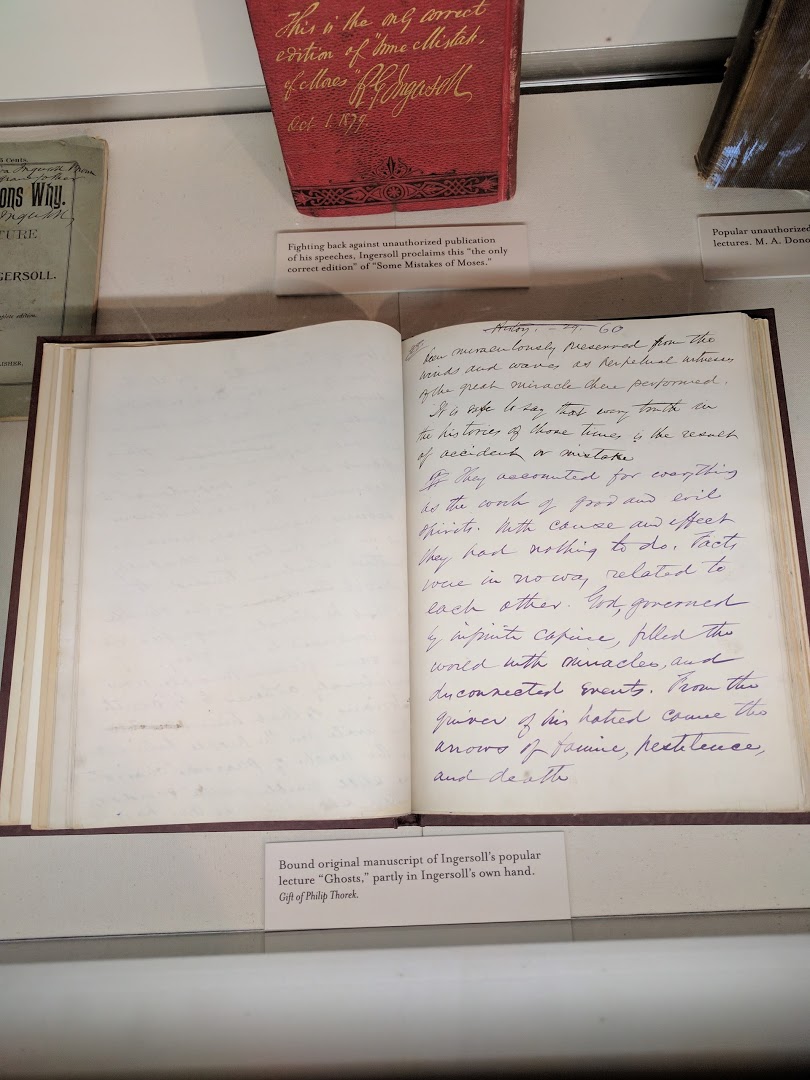 This is the only correct
edition of "Some Mistakes
of Moses" R. G. Ingersoll
Oct 1. 1879.
5 Cents.
ons Why.
TURE
GERSOLL.
edition.
LISHER.
Fighting back against unauthorized publication
of his speeches, Ingersoll proclaims this "the only
correct edition" of "Some Mistakes of Moses."
Popular unauthorized
lectures. M. A. Dono
History. - 29. 60
been miraculously preserved from the
winds and waves as perpetual witnesses
of the great miracle there performed.
It is safe to say that every truth in
the histories of those times is the result
of accident or mistake
They accounted for everything
as the work of good and evil
spirits. With cause and effect
they had nothing to do. Facts
were in no way related to
each other. God, governed
by infinite caprice, filled the
world with miracles, and
disconnected events. From the
quiver of his hatred came the
arrows of famine, pestilence,
and death
Bound original manuscript of Ingersoll's popular
lecture "Ghosts," partly in Ingersoll's own hand.
Gift of Philip Thorek.